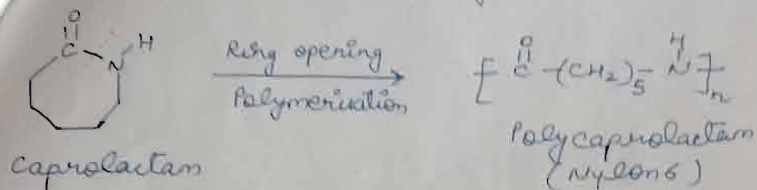 O
C
N
H
Caprolactam
Ring opening
Polymerization
[ C -(CH2)5- N ]n
O
H
Polycaprolactam
(Nylon 6)